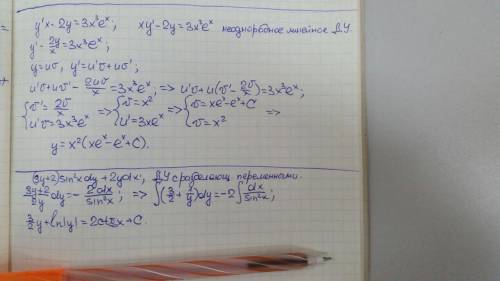 y'x - 2y = 3x³eˣ; xy' - 2y = 3x³eˣ неоднородное линейное Д.У.
y' - 2y/x = 3x³eˣ;
y = uv, y' = u'v + uv';
u'v + uv' - 2uv/x = 3x³eˣ, => u'v + u(v' - 2v/x) = 3x³eˣ;
{v' = 2v/x => {v = x², => {v = xeˣ - eˣ + C =>
{u'v = 3x³eˣ {u' = 3xeˣ {v = x²
y = x²(xeˣ - eˣ + C).
(3y+2)sin²x dy + 2y dx; Д.У с разделяющ. переменными.
(3y+2)/2y dy = - 2dx/sin²x; => ∫(3/2 + 1/y)dy = -2∫dx/sin²x;
3/2 y + ln|y| = 2ctgx + C.